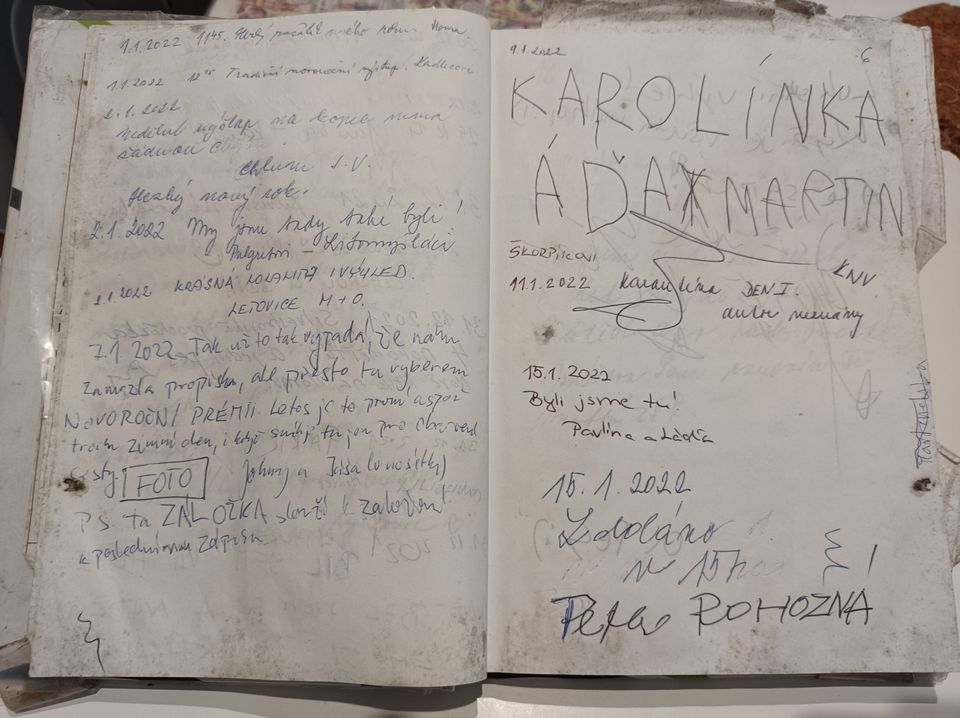 1.1.2022 1145. nového roku. Homa.
1.1.2022 Tradiční novoroční výstup.
2.1.2022
výšlap na kopec nemá
žádnou
chlum J.V.
Hezký nový rok.
2.1.2022 My jsme tady také byli!
– Litomyšláci
2.1.2022 KRÁSNÁ LOKALITA I VÝHLED.
LETOVICE M+O.
7.1 2022 Tak už to tak vypadá, že nám
zamrzla propiska, ale přesto tu vyberem
NOVOROČNÍ PRÉMII. Letos je to první aspoň
trochu zimní den, i když sníh tu jen pro
cesty. FOTO Johny a
P.S. ta ZÁLOŽKA slouží k založení
k poslednímu zápisu
9.1.2022 6
KAROLÍNKA
ÁĎA X MARTIN
ŠKORPÍKOVI
KNV
11.1.2022 DEN I.
autor neznámý
15.1.2022
Byli jsme tu!
Pavlína a
15.1.2022
Zdoláno
v 15h
Petra ROHOZNÁ